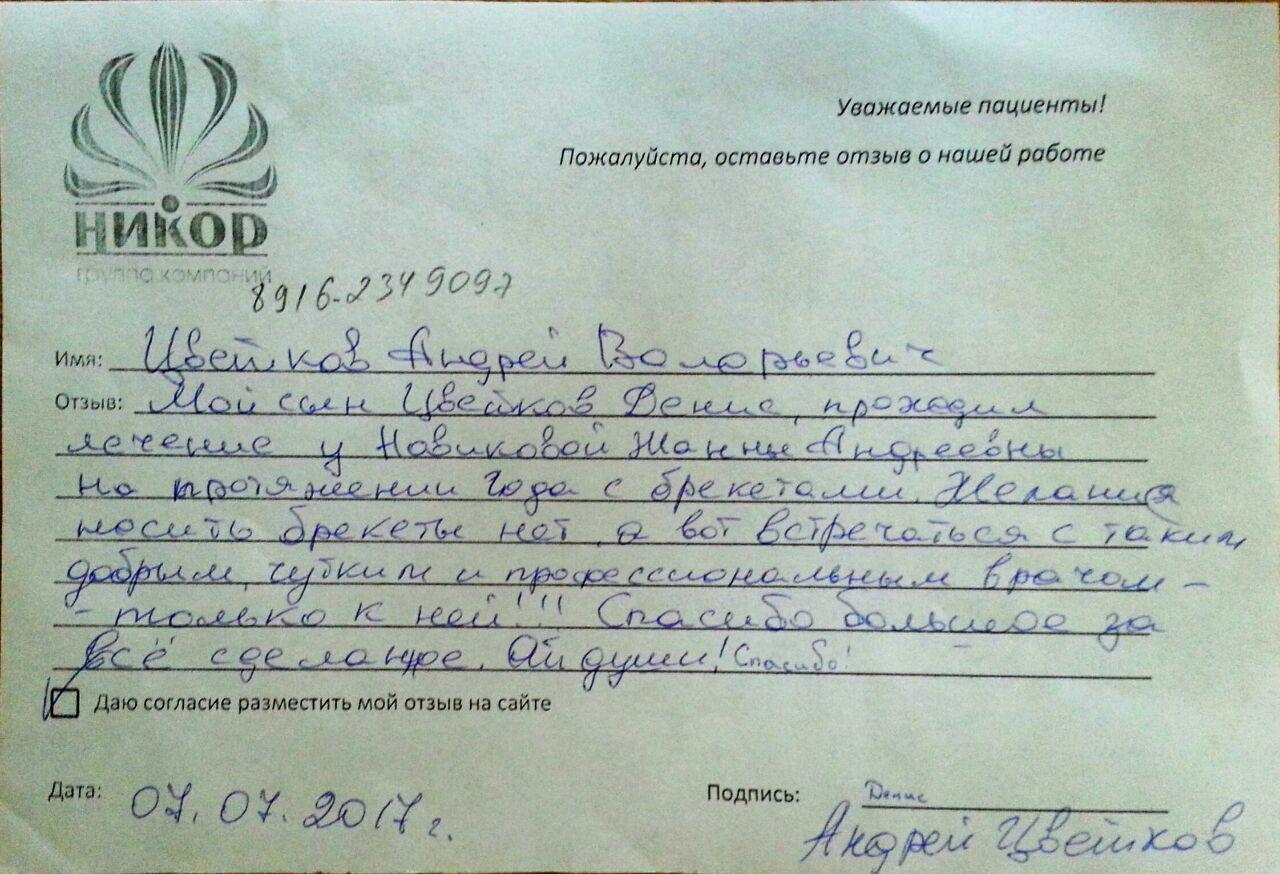 Уважаемые пациенты!
Пожалуйста, оставьте отзыв о нашей работе
НИКОР
группа компаний
8916-2349097
Имя: Цветков Андрей Валорьевич
Отзыв: Мой сын Цветков Денис, проходил
лечение у Новиковой Жанны Андреевны
на протяжении года с брекетами. Желания
носить брекеты нет, а вот встречаться с таким
добрым, чутким и профессиональным врачом -
- только к ней!!! Спасибо большое за
всё сделанное. От души! Спасибо!
Даю согласие разместить мой отзыв на сайте
Дата: 07.07.2017г.
Подпись: Денис
Андрей Цветков